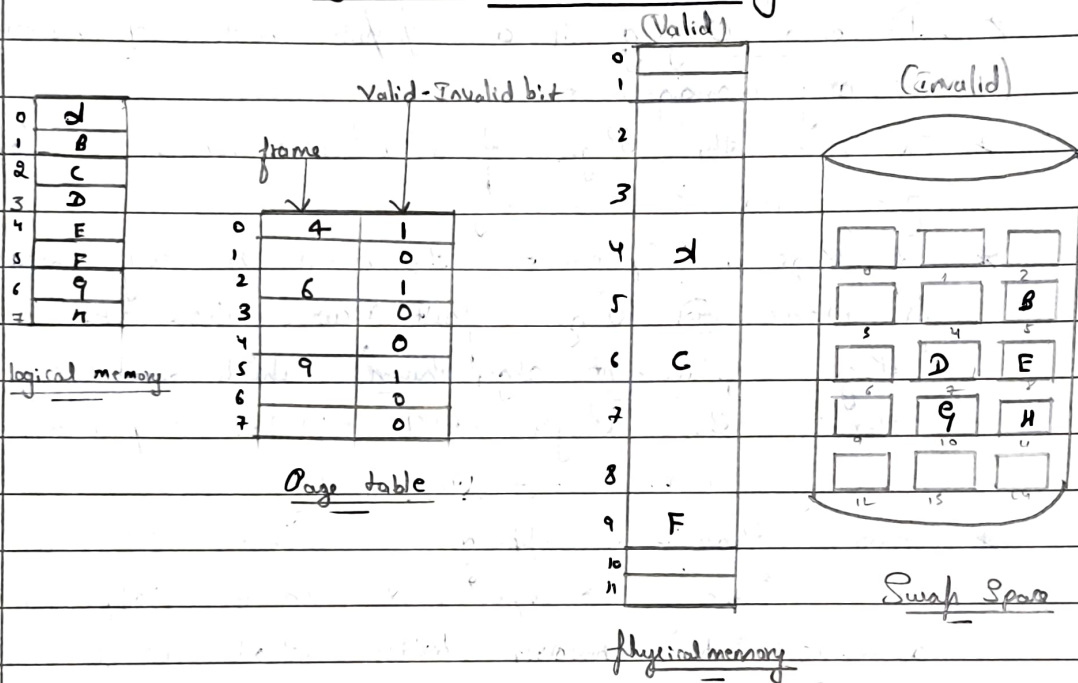 (Valid)
(invalid)
Valid-Invalid bit
frame
0 A
1 B
2 C
3 D
4 E
5 F
6 G
7 H
logical memory
0 4 1
1 0
2 6 1
3 0
4 0
5 9 1
6 0
7 0
Page table
0
1
2
3
4 A
5
6 C
7
8
9 F
10
11
Physical memory
0 1 2
B
3 4 5
D E
6 7 8
G H
9 10 11
12 13 14
Swap Space